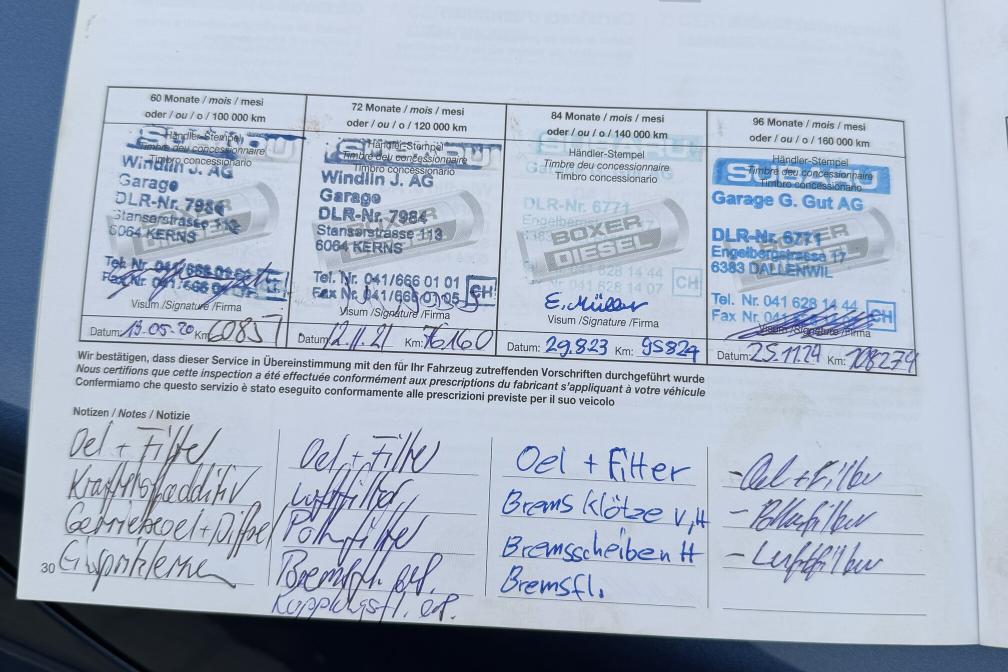 60 Monate / mois / mesi
oder / ou / o / 100 000 km
Händler-Stempel
Timbre deu concessionnaire
Timbro concessionario
SUBARU
Windlin J. AG
Garage
DLR-Nr. 7984
Stanserstrasse 113
6064 KERNS
Tel. Nr. 041/666 01 01
Fax Nr. 041/666
Visum /Signature /Firma
Datum 19.05.20 Km 60857
72 Monate / mois / mesi
oder / ou / o / 120 000 km
Händler-Stempel
Timbre deu concessionnaire
Timbro concessionario
SUBARU
Windlin J. AG
Garage
DLR-Nr. 7984
Stanserstrasse 113
6064 KERNS
Tel. Nr. 041/666 01 01
Fax Nr. 041/666 01 05 CH
Visum /Signature /Firma
Datum: 12.11.21 Km: 76160
84 Monate / mois / mesi
oder / ou / o / 140 000 km
Händler-Stempel
Timbre deu concessionnaire
Timbro concessionario
DLR-Nr. 6771
Engelbergstrasse 17
BOXER
DIESEL
041 628 14 44
041 628 14 07 CH
E. Müller
Visum /Signature /Firma
Datum: 29.823 Km: 95824
96 Monate / mois / mesi
oder / ou / o / 160 000 km
Händler-Stempel
Timbre deu concessionnaire
Timbro concessionario
SUBARU
Garage G. Gut AG
DLR-Nr. 6771
Engelbergstrasse 17
6383 DALLENWIL
Tel. Nr. 041 628 14 44
Fax Nr. 041 CH
Visum /Signature /Firma
Datum: 25.11.24 Km: 108274
Wir bestätigen, dass dieser Service in Übereinstimmung mit den für Ihr Fahrzeug zutreffenden Vorschriften durchgeführt wurde
Nous certifions que cette inspection a été effectuée conformément aux prescriptions du fabricant s'appliquant à votre véhicule
Confermiamo che questo servizio è stato eseguito conformamente alle prescrizioni previste per il suo veicolo
Notizen / Notes / Notizie
Oel + Filter
Kraftstoffadditiv
Getriebeoel + Diffoel
Oel + Filter
Luftfilter
Pollenfilter
Bremsfl.
Kupplungsfl.
Oel + Filter
Brems klötze v,H
Bremsscheiben H
Bremsfl.
- Oel + Filter
- Pollenfilter
- Luftfilter
30